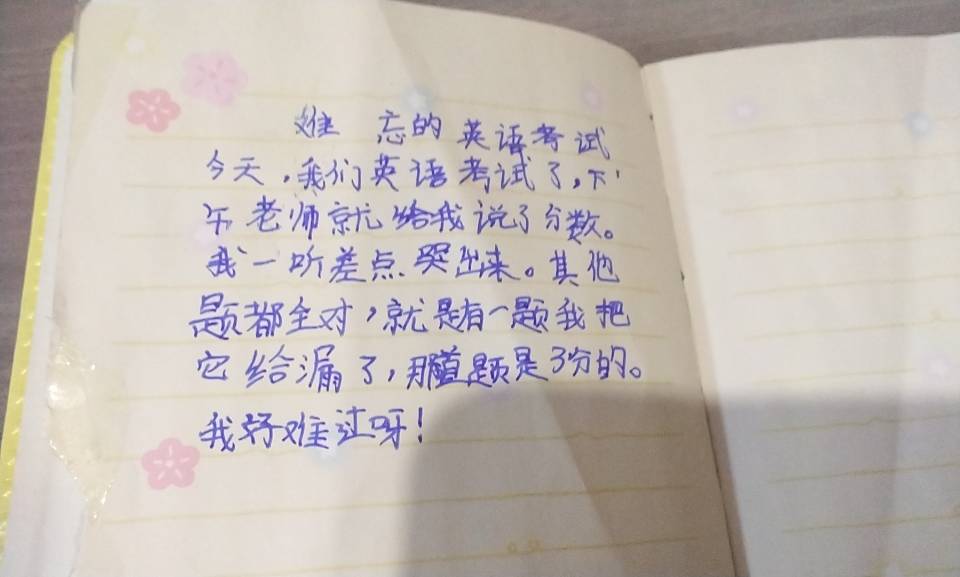 难 忘的英语考试
今天,我们英语考试了,下
午老师就给我说了分数。
我一听差点哭出来。其他
题都全对,就是有一题我把
它给漏了,那道题是3分的。
我好难过呀!